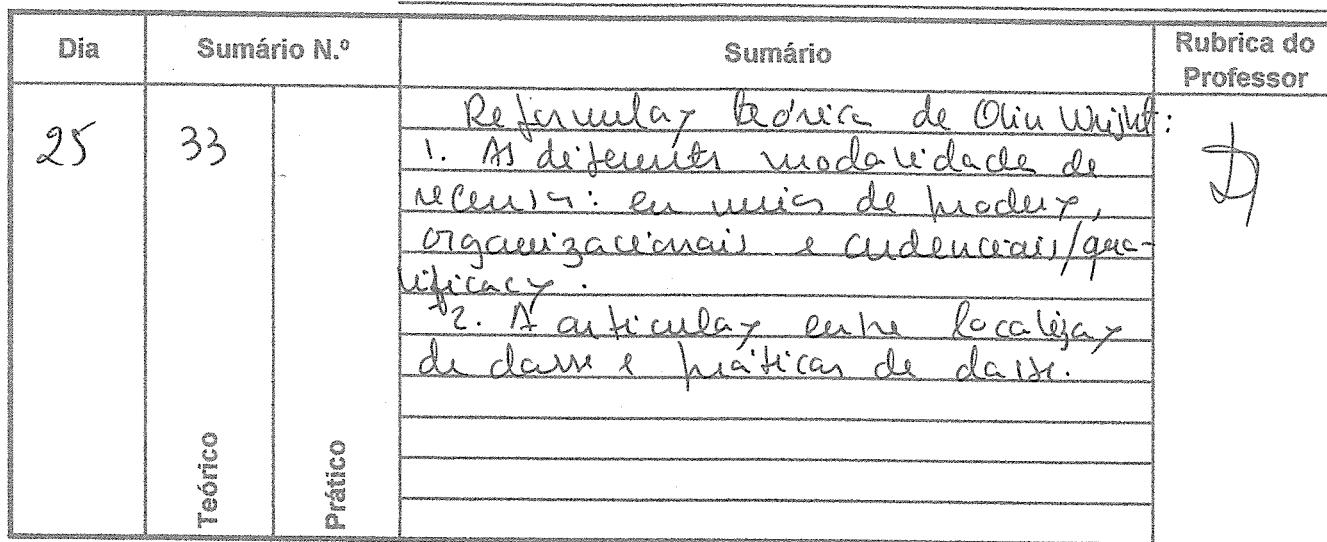 Dia
Sumário N.º
Sumário
Rubrica do
Professor
25
33
Reformulaç teórica de Olin Wright:
1. As diferentes modalidades de
recursos: em meios de produç,
organizacionais e credenciais/qua-
lificaç.
2. A articulaç entre localizaç
de classe e práticas de classe.
Teórico
Prático